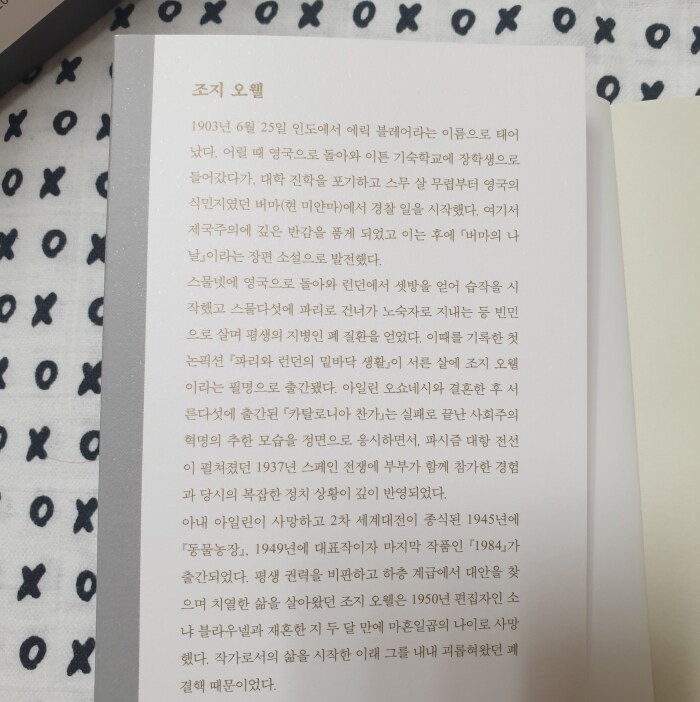 조지 오웰
1903년 6월 25일 인도에서 에릭 블레어라는 이름으로 태어
났다. 어릴 때 영국으로 돌아와 이튼 기숙학교에 장학생으로
들어갔다가, 대학 진학을 포기하고 스무 살 무렵부터 영국의
식민지였던 버마(현 미얀마)에서 경찰 일을 시작했다. 여기서
제국주의에 깊은 반감을 품게 되었고 이는 후에 『버마의 나
날』이라는 장편 소설으로 발전했다.
스물넷에 영국으로 돌아와 런던에서 셋방을 얻어 습작을 시
작했고 스물다섯에 파리로 건너가 노숙자로 지내는 등 빈민
으로 살며 평생의 지병인 폐 질환을 얻었다. 이때를 기록한 첫
논픽션 『파리와 런던의 밑바닥 생활』이 서른 살에 조지 오웰
이라는 필명으로 출간됐다. 아일린 오쇼네시와 결혼한 후 서
른다섯에 출간된 『카탈로니아 찬가』는 실패로 끝난 사회주의
혁명의 추한 모습을 정면으로 응시하면서, 파시즘 대항 전선
이 펼쳐졌던 1937년 스페인 전쟁에 부부가 함께 참가한 경험
과 당시의 복잡한 정치 상황이 깊이 반영되었다.
아내 아일린이 사망하고 2차 세계대전이 종식된 1945년에
『동물농장』, 1949년에 대표작이자 마지막 작품인 『1984』가
출간되었다. 평생 권력을 비판하고 하층 계급에서 대안을 찾
으며 치열한 삶을 살아왔던 조지 오웰은 1950년 편집자인 소
냐 블라우넬과 재혼한 지 두 달 만에 마흔일곱의 나이로 사망
했다. 작가로서의 삶을 시작한 이래 그를 내내 괴롭혀왔던 폐
결핵 때문이었다.